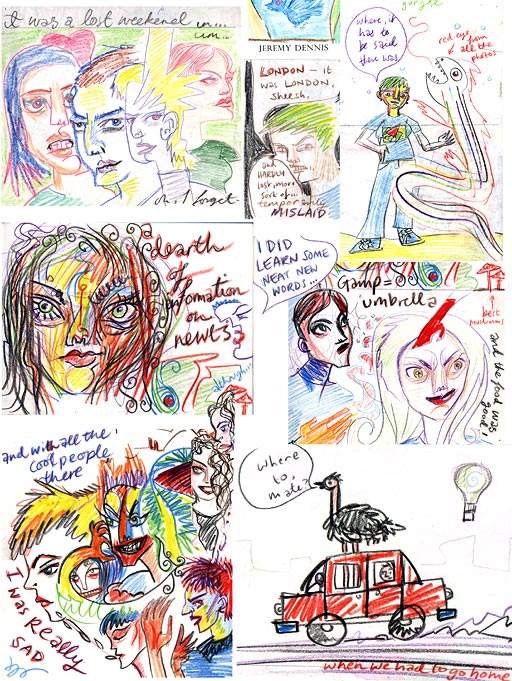 it was a lost weekend um...
um...
oh, I forget
JEREMY DENNIS
LONDON – it
was LONDON,
sheesh.
and
HARDLY
lost, more
sort of...
temporarily
MISLAID
where, it
has to
be said
there was
red eye
from
all the
photos
a
dearth
of
infomation
on
newts
although...
I DID
LEARN SOME
NEAT NEW
WORDS...
Gamp =
umbrella
best
mushrooms
and the food was
good!
and with all the
cool people
there
I was Really
SAD
where
to,
mate?
when we had to go home